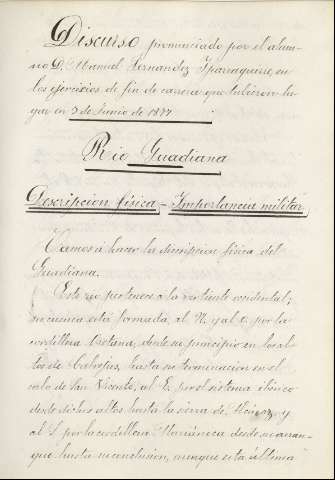 Discurso pronunciado por el alum-
no D. Manuel Fernandez Yparraguirre, en
los ejercicios de fin de carrera que tubieron lu-
gar en 9 de Junio de 1877
Rio Guadiana
Descripcion física - Importancia militar
Vamos á hacer la discripcion física del
Guadiana.
Este rio pertenece á la vertiente occidental;
su cuenca está formada, al N. y al O. por la
cordillera Oretana, desde su principio en los al-
tos de Cabrejas, hasta su terminacion en el
cabo de San Vicente, al E. por el sistema ibérico
desde dichos altos hasta la sierra de Alcaraz y
al S. por la cordillera Marianica desde su arran-
que hasta su conclusion, aunque esta última